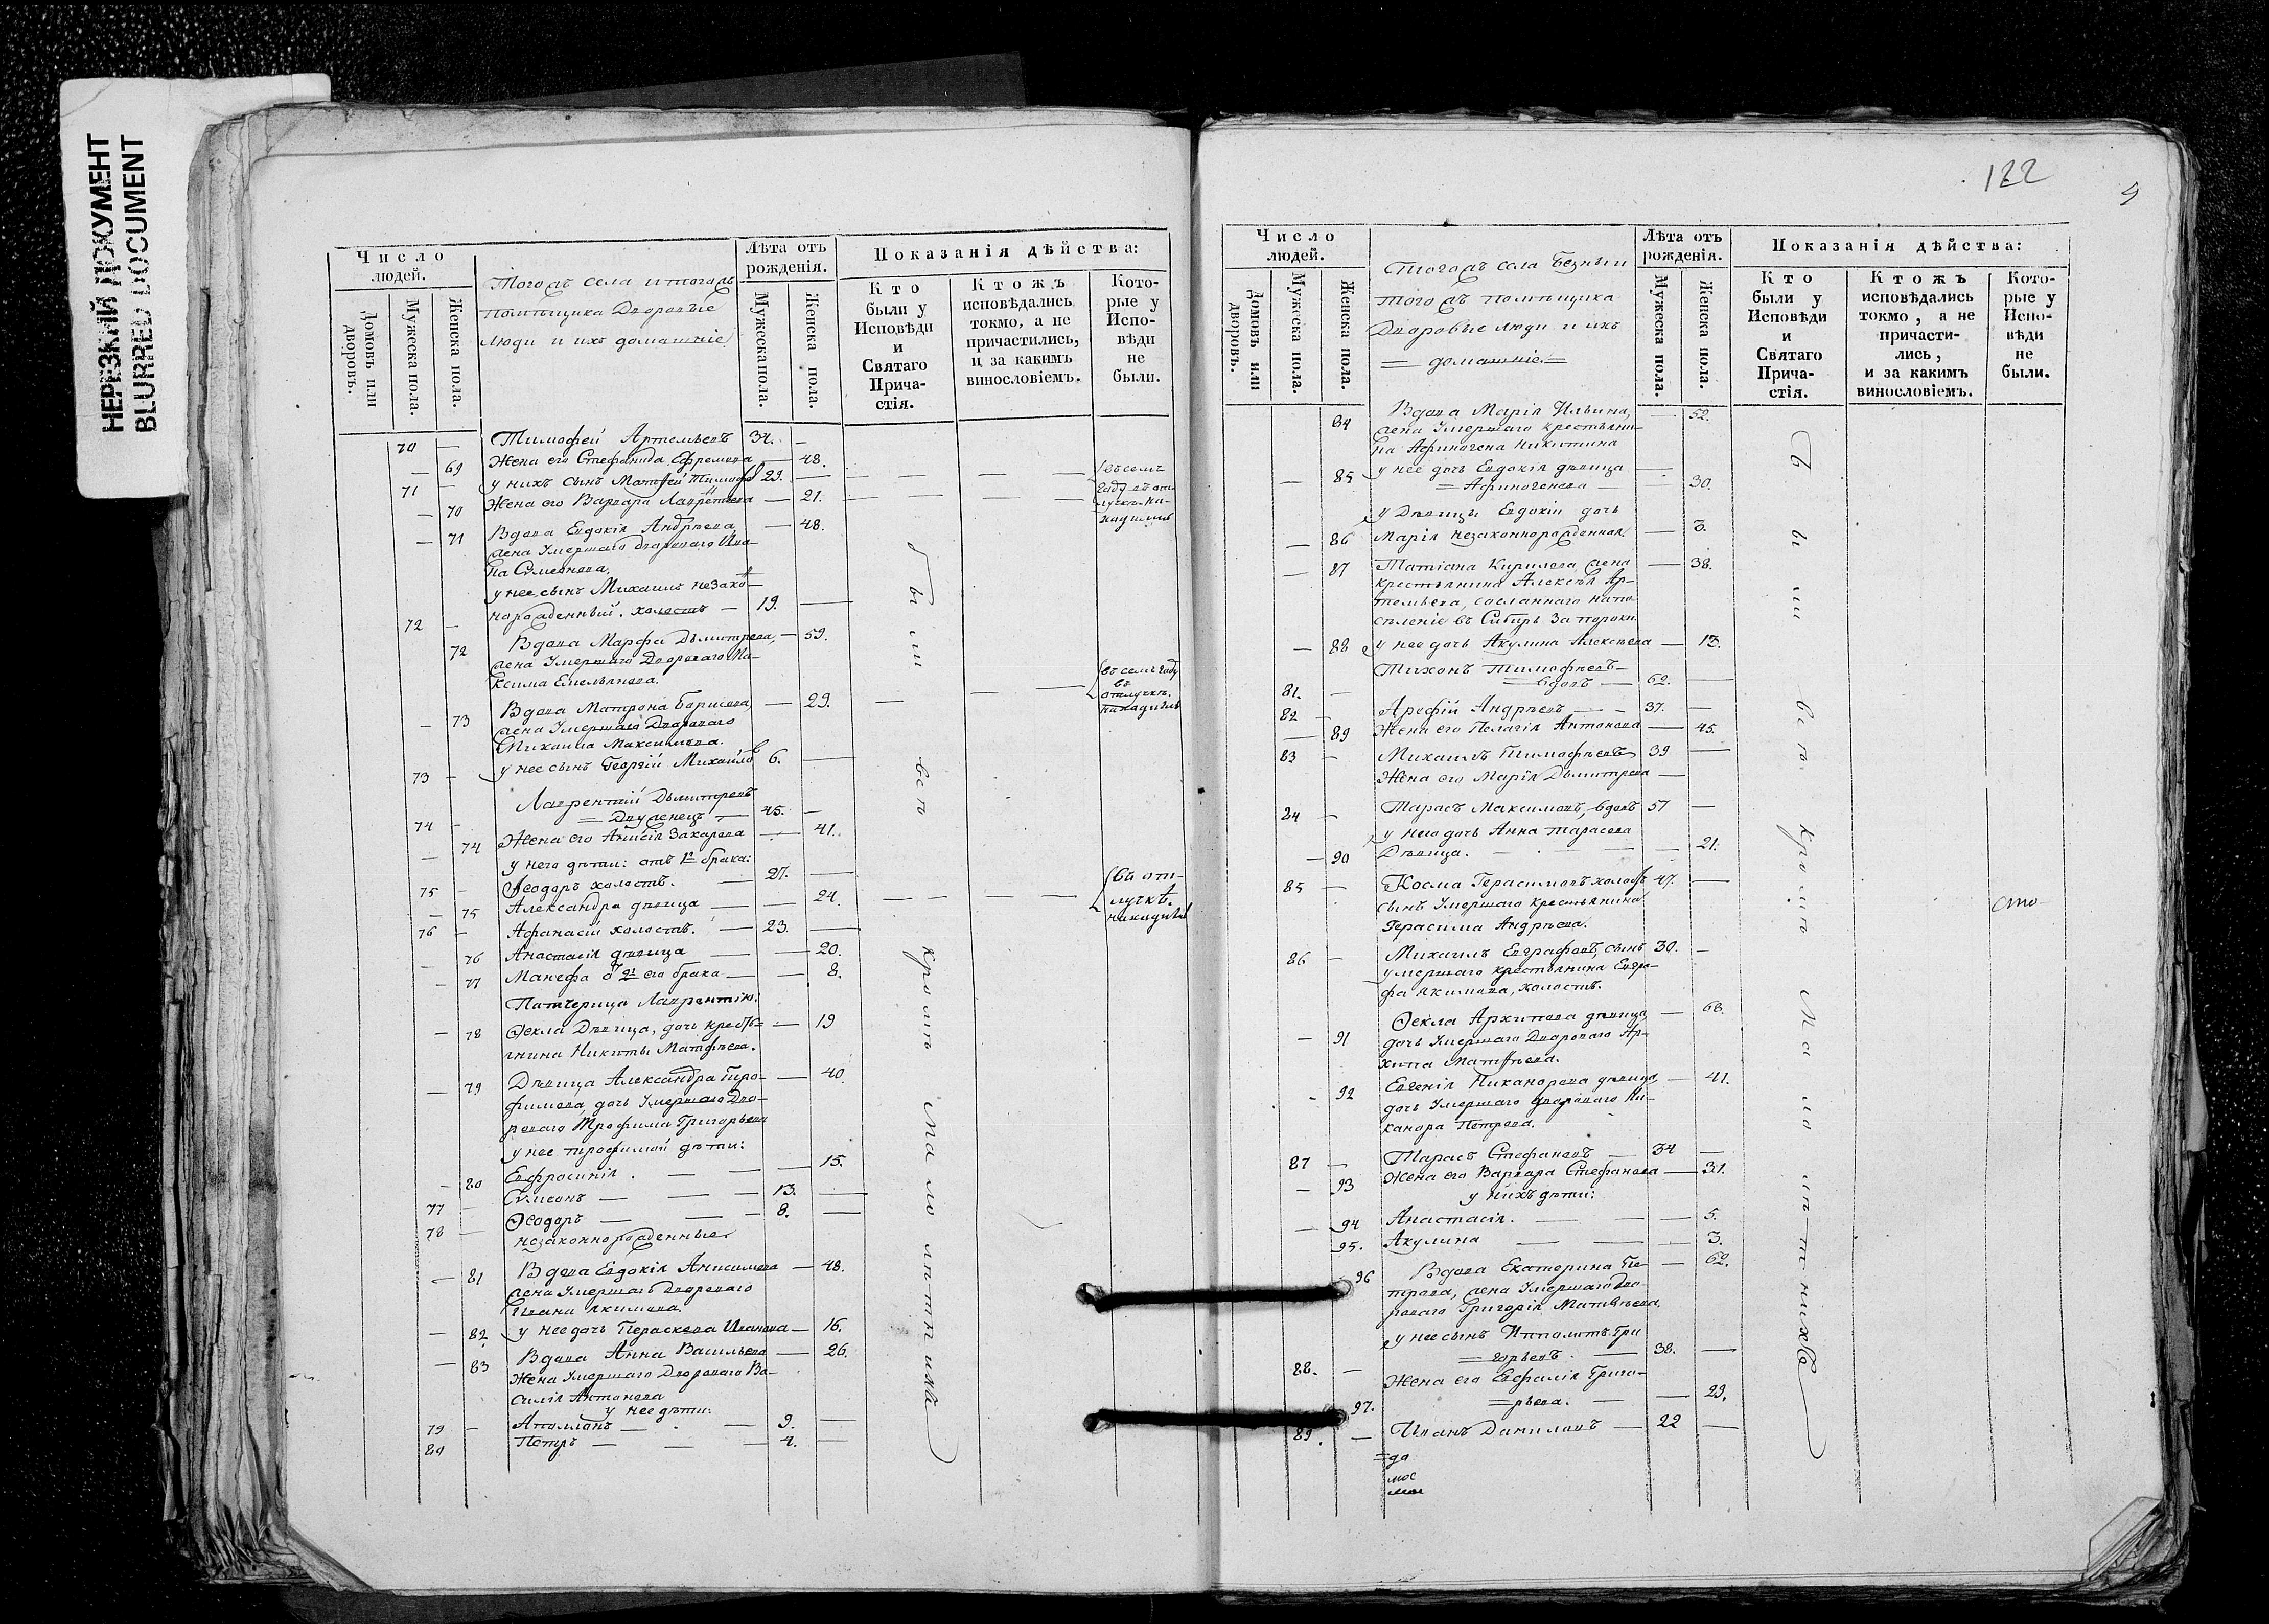 НЕРЕЗКИЙ ДОКУМЕНТ
BLURRED DOCUMENT
Число людей.
Домовъ или дворовъ.
Мужеска пола.
Женска пола.
Тогожъ села и тогожъ
помѣщика Дворовые
люди и ихъ домашніе
Лѣта отъ рожденія.
Мужеска пола.
Женска пола.
Показанія дѣйства:
Кто были у Исповѣди и Святаго Прича-стія.
Ктожъ исповѣдались токмо, а не причастились, и за какимъ винословіемъ.
Кото-рые у Испо-вѣди не были.
70 — Тимофей Артемьевъ 34. —
— 69 Жена его Стефанида Ефремова — 48.
71 — у нихъ сынъ Матфей Тимоф 29. —
— 70 Жена его Варвара Лаврентьева — 21.
въ семъ
году въ от-
лучкѣ на-
ходились
— 71 Вдова Евдокія Андрѣева, — 48.
жена Умершаго двороваго Ива-
на Сѵмеонова.
у нее сынъ Михаилъ незако-
72 — норожденный. холостъ — 19. —
— 72 Вдова Марфа Дьмитрева, — 59.
жена Умершаго Двороваго Ма-
ксима Емельянова.
— 73 Вдова Матрона Борисова, — 29. —
жена Умершаго Двороваго
Михаила Максимова.
въ семъ году
въ
отлучкѣ.
находилась
73 — у нее сынъ Георгій Михайло 6. —
Лаврентій Дьмитревъ
74 — = Двуженецъ — 45. —
— 74 Жена его Анисія Захарова — 41.
у него дѣти: отъ 1го брака:
75 — Ѳеодоръ холостъ. — 27. —
— 75 Александра дѣвица — — 24.
Въ от-
лучкѣ.
находилась
76 — Афанасій холостъ. — 23. —
— 76 Анастасія дѣвица — — 20.
— 77 Манефа 2 его брака — — 8.
Патчерица Лаврентію.
— 78 Ѳекла Дѣвица, дочь крестья- — 19
нина Никиты Матфѣева.
— 79 Дѣвица Александра Тро- — 40.
фимова, дочь Умершаго Дво-
роваго Трофима Григорьева
у нее трофимой дѣти:
— 80 Евфросинія. — — 15.
77 — Сѵмеонъ — — 13. —
78 — Ѳеодоръ — — 8. —
незаконнорожденные.
— 81 Вдова Евдокія Анисимова — 48.
жена Умершаго Двороваго
Ивана Акимова.
— 82. у нее дочь Параскева Иванова — 16.
— 83 Вдова Анна Васильева — 26.
Жена Умершаго Двороваго Ва-
силія Антонова
у нее дѣти:
79 — Аполлонъ — — 9. —
80 Петръ — — 4. —
были всѣ кромѣ малолѣтнихъ
122
9
Число людей.
Домовъ или дворовъ.
Мужеска пола.
Женска пола.
Тогожъ села Безныи
того жъ помѣщика
Дворовые люди и ихъ
= домашніе. =
Лѣта отъ рожденія.
Мужеска пола.
Женска пола.
Показанія дѣйства:
Кто были у Исповѣди и Святаго Прича-стія.
Ктожъ исповѣдались токмо, а не причасти-лись, и за какимъ винословіемъ.
Кото-рые у Испо-вѣди не были.
84 Вдова Марія Ильина, — 52.
жена Умершаго крестьяни-
на Афиногена Никитина
— 85 у нее дочь Евдокія дѣвица —
= Афиногенова — 30.
у Дѣвицы Евдокіи дочь
— 86 Марія незаконнорожденная. — 3.
— 87 Татіана Кирилова жена — 38.
крестьянина Алексѣя Ар-
темьева, сосланнаго на по-
сѣленіе въ Сибирь за пороки.
— 88 у нее дочь Акулина Алексѣева — 13.
Тихонъ Тимофѣевъ —
81. — вдовъ — 62. —
82 — Арефій Андрѣевъ — 37. —
— 89 Жена его Пелагія Антонова — 45.
83 — Михаилъ Тимофѣевъ 39 —
Жена его Марія Дьмитрева —
84 — Тарасъ Максимовъ, вдовъ 57 —
у него дочь Анна тарасова
— 90 Дѣвица. — — 21.
85 — Косма Герасимовъ холостъ 47. —
сынъ Умершаго крестьянина
Герасима Андрѣева.
86 — Михаилъ Евграфовъ, сынъ 30. —
умершаго крестьянина Евгра-
фа Акимова, холостъ.
— 91 Ѳекла Архипова дѣвица, — 68.
дочь Умершаго Двороваго Ар-
хипа Матфѣева.
— 92 Евгенія Никанорова дѣвица, — 41.
дочь Умершаго двороваго Ни-
канора Петрова.
87 — Тарасъ Стефановъ — 34 —
— 93 Жена его Варвара Стефанова — 31.
у нихъ дѣти:
— 94 Анастасія. — — 5.
95. Акулина — — 3.
96 Вдова Екатерина Пе- — 62.
трова, жена Умершаго Дво-
роваго Григорія Матвѣева.
у нее сынъ Ипполитъ Гри
88. — = горьевъ. — 38. —
Жена его Евфалія Григо-
97. = рьева. — — 29.
89. — Иванъ Даниловъ — 22 —
= да
мос
были всѣ кромѣ малолѣтнихъ